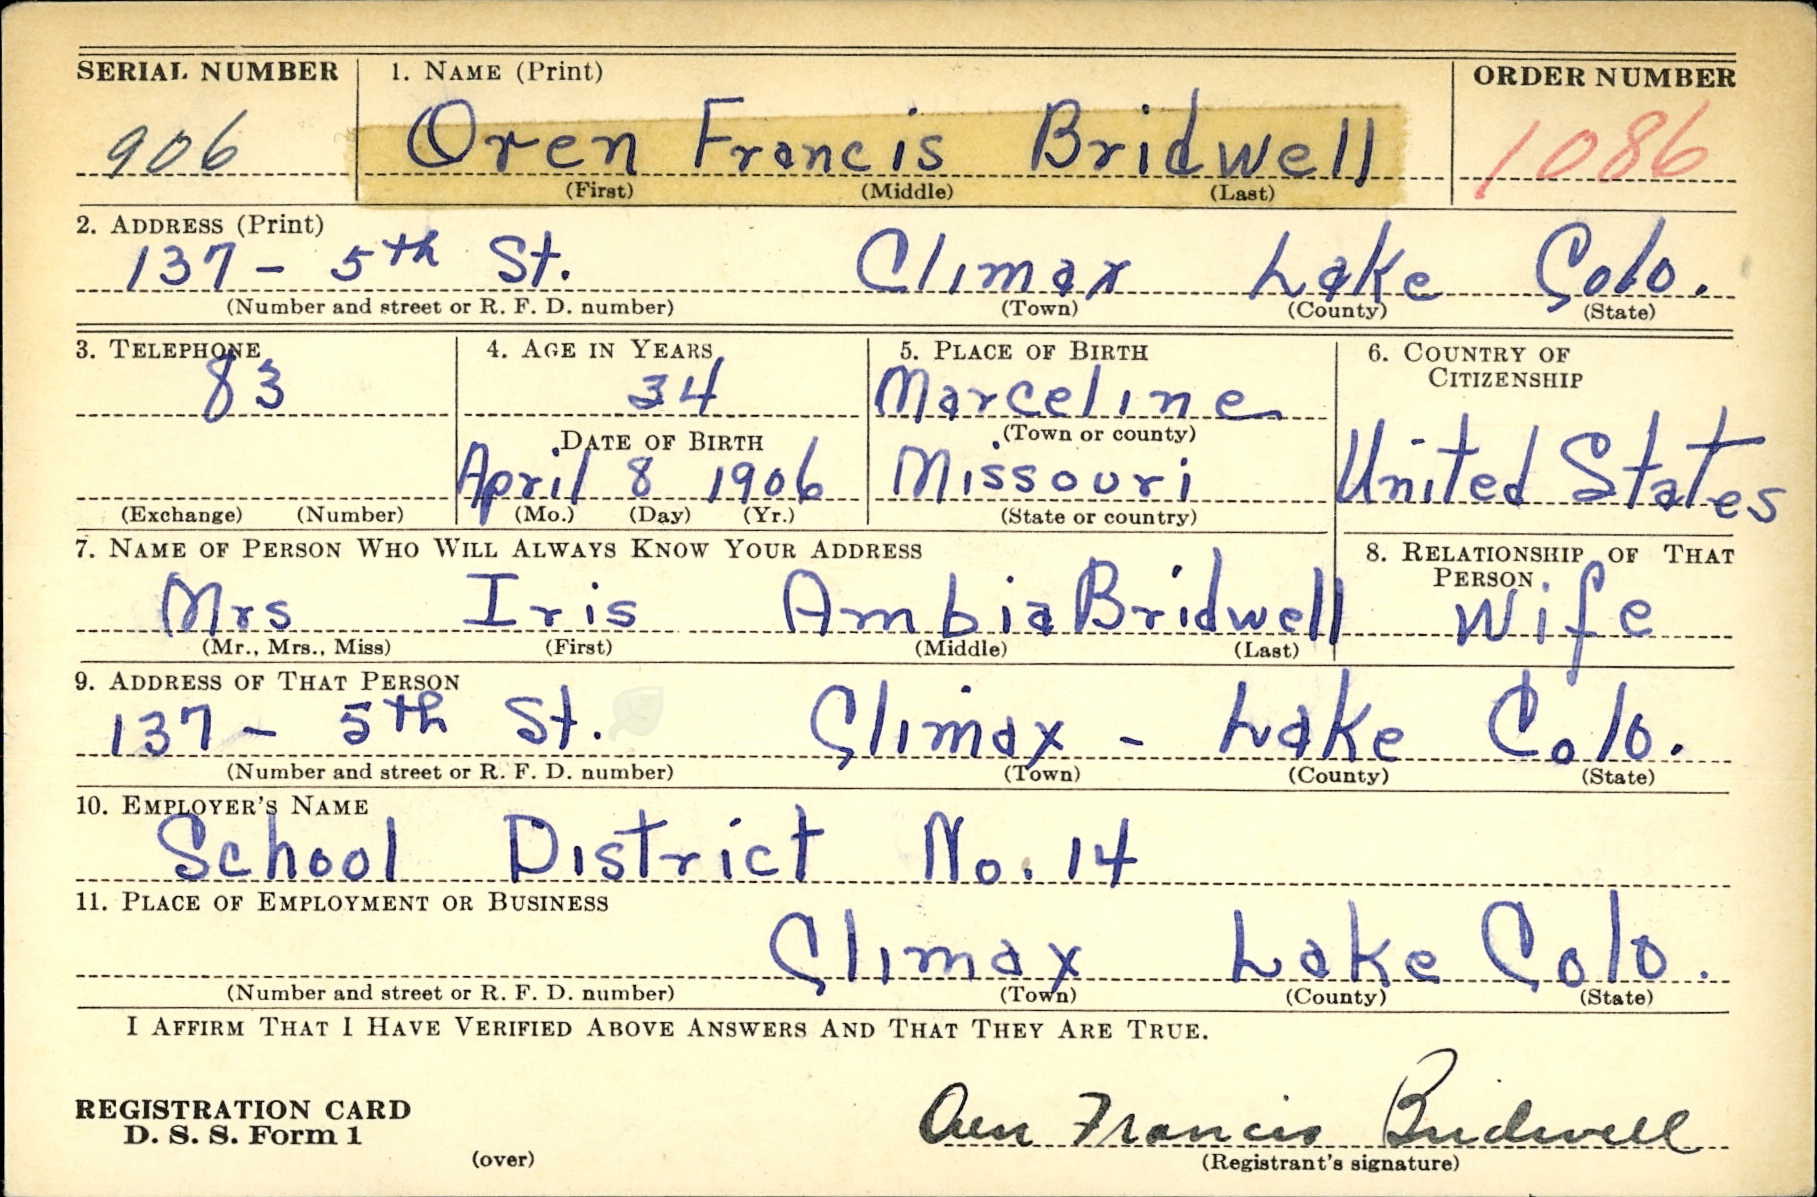 SERIAL NUMBER 1. NAME (Print) ORDER NUMBER
906 Oren Francis Bridwell 1086
(First) (Middle) (Last)
2. ADDRESS (Print)
137 - 5th St. Climax Lake Colo.
(Number and street or R. F. D. number) (Town) (County) (State)
3. TELEPHONE 4. AGE IN YEARS 5. PLACE OF BIRTH 6. COUNTRY OF
CITIZENSHIP
83 34 Marceline
DATE OF BIRTH (Town or county)
April 8 1906 Missouri United States
(Exchange) (Number) (Mo.) (Day) (Yr.) (State or country)
7. NAME OF PERSON WHO WILL ALWAYS KNOW YOUR ADDRESS 8. RELATIONSHIP OF THAT
PERSON
Mrs Iris Ambia Bridwell Wife
(Mr., Mrs., Miss) (First) (Middle) (Last)
9. ADDRESS OF THAT PERSON
137 - 5th St. Climax - Lake Colo.
(Number and street or R. F. D. number) (Town) (County) (State)
10. EMPLOYER'S NAME
School District No. 14
11. PLACE OF EMPLOYMENT OR BUSINESS
Climax Lake Colo.
(Number and street or R. F. D. number) (Town) (County) (State)
I AFFIRM THAT I HAVE VERIFIED ABOVE ANSWERS AND THAT THEY ARE TRUE.
REGISTRATION CARD
D. S. S. Form 1 Oren Francis Bridwell
(over) (Registrant's signature)